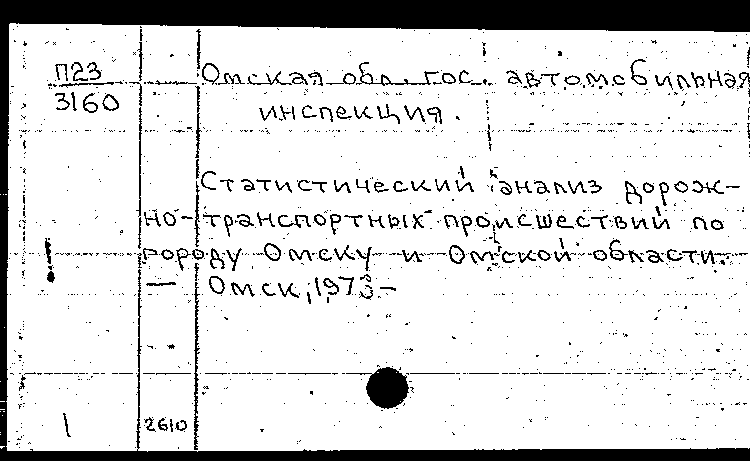 П23
3160
Омская обл. гос. автомобильная
инспекция.
Статистический анализ дорож-
но-транспортных происшествий по
городу Омску и Омской области.
! — Омск, 1973-
1 2610